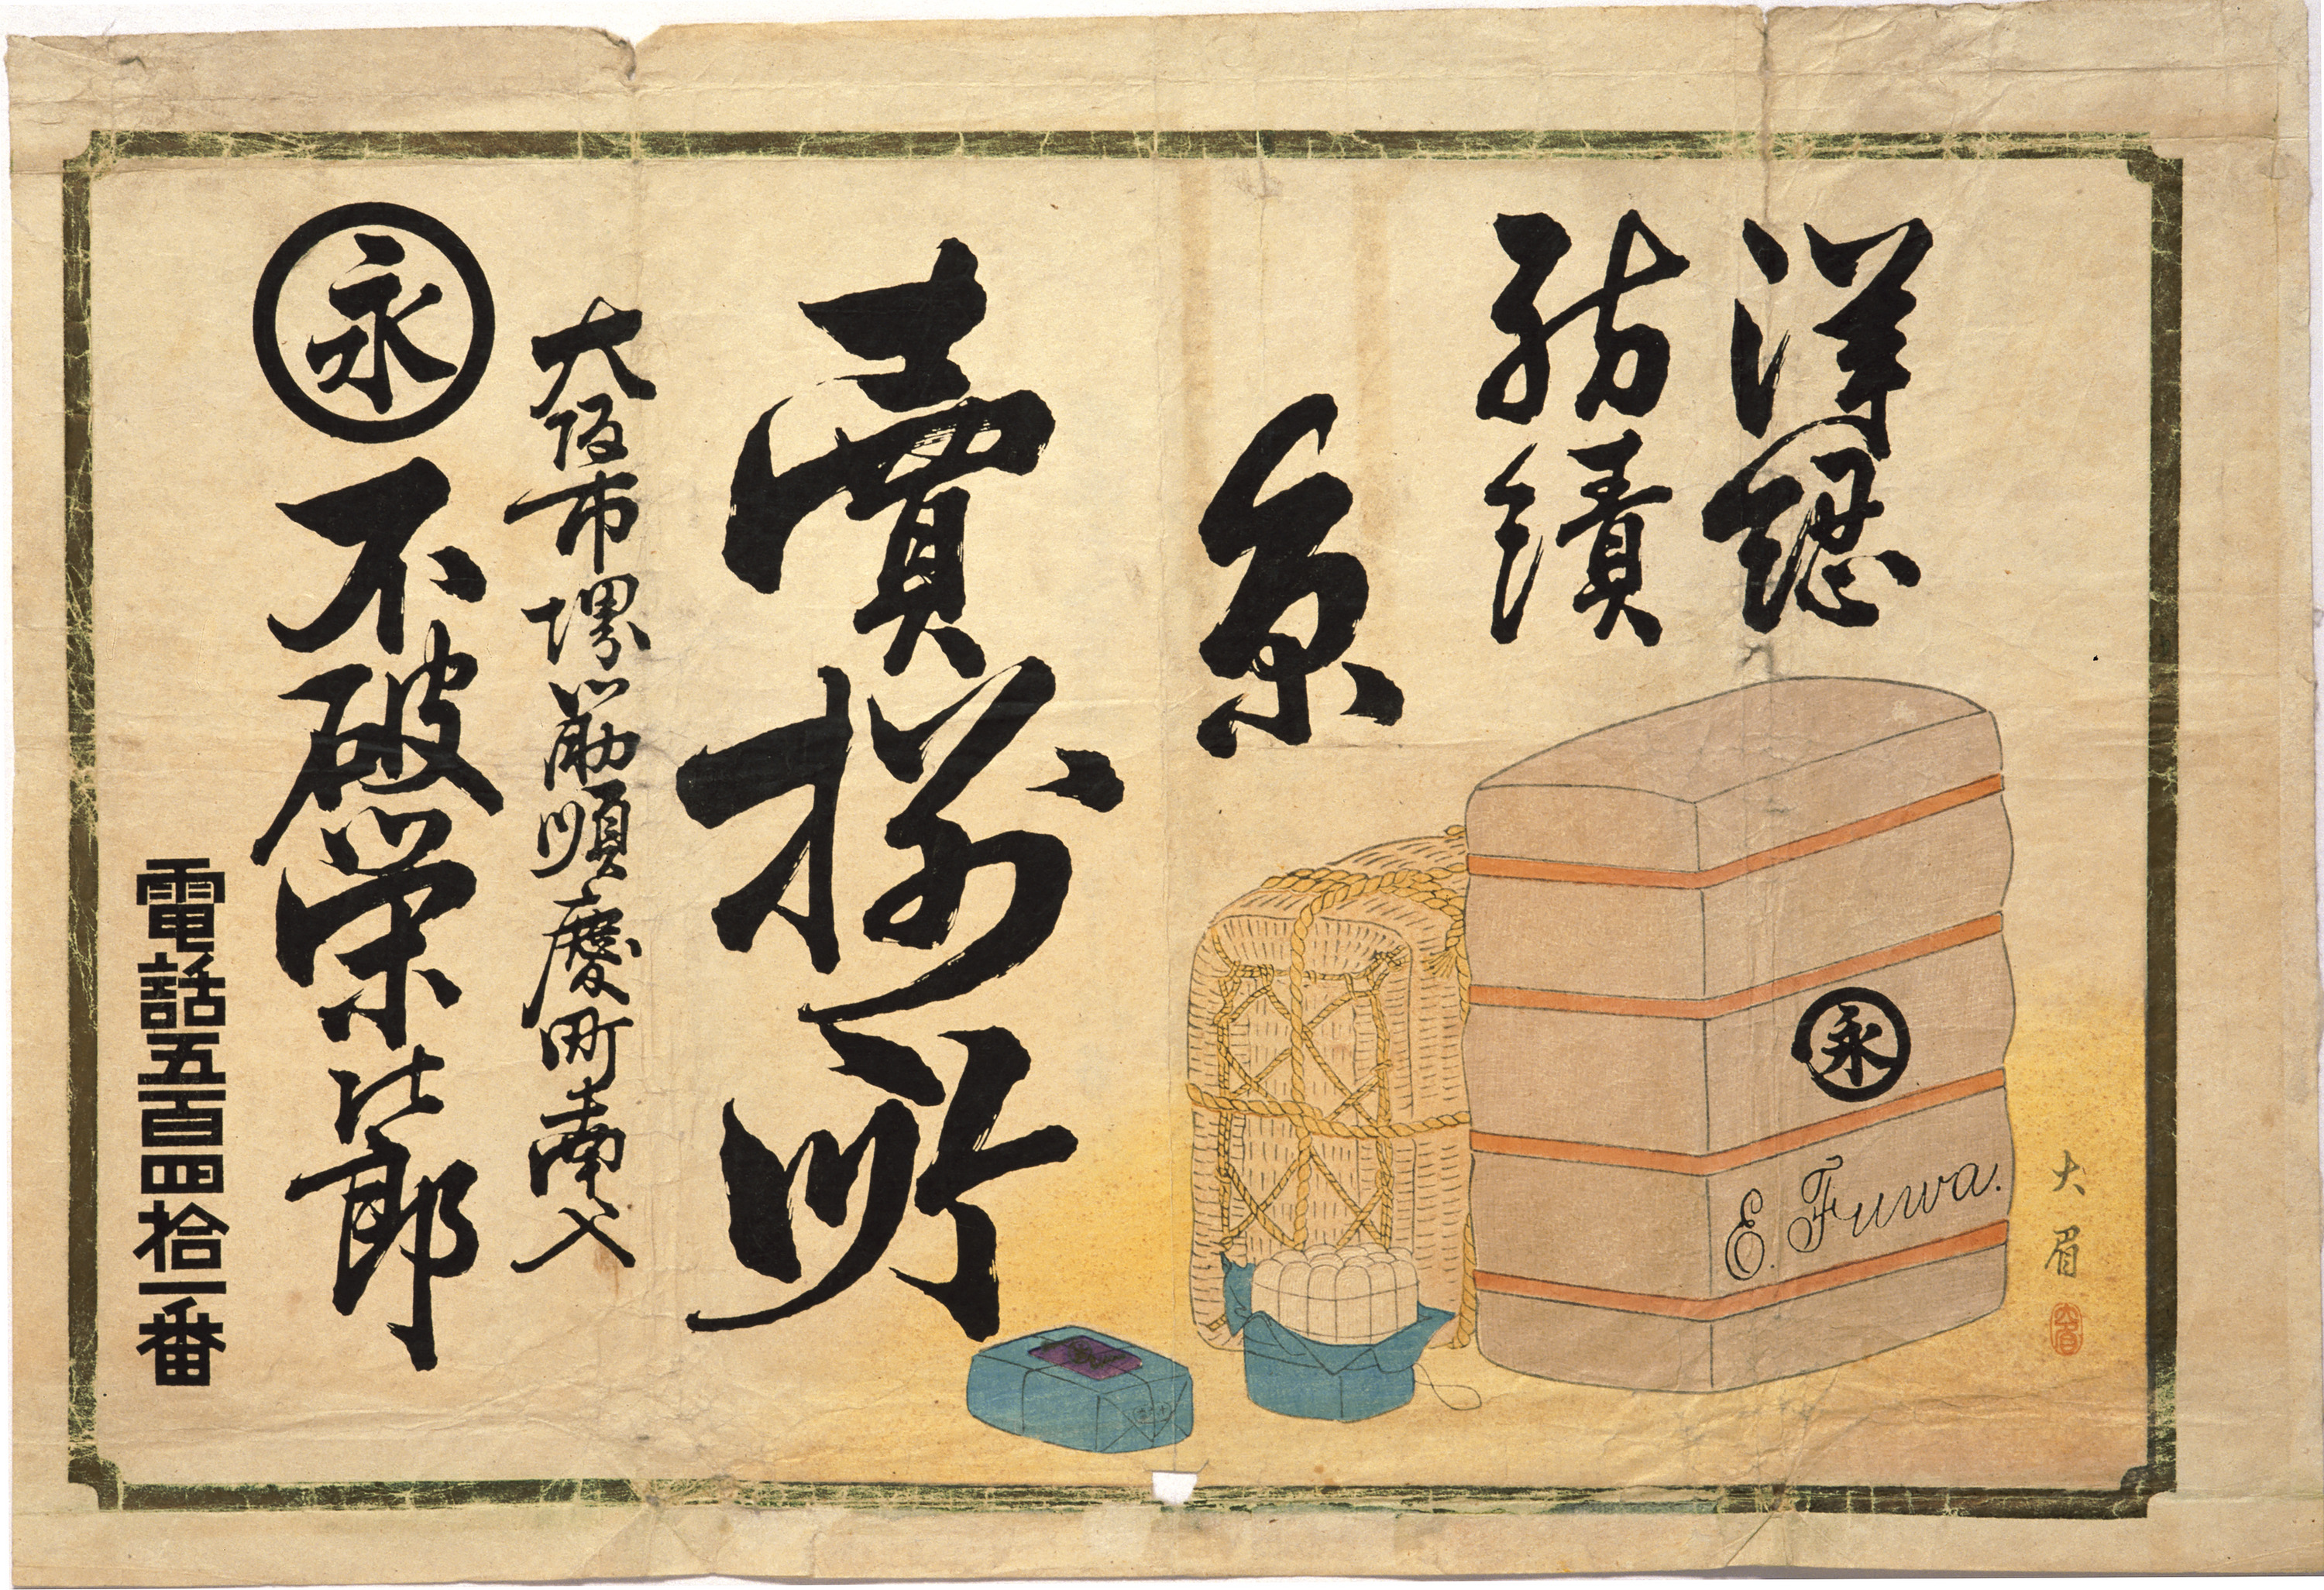 洋綛
紡績
糸
賣捌所
大阪市堺筋順慶町南入
永 不破栄次郎
電話五百四拾一番
永
E. Fuwa.
大眉